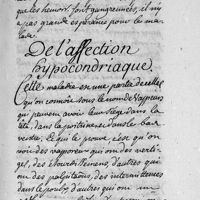 que les humeurs sont gangrennées, il n'y
a pas grande esperance pour le ma
lade.
De l'affection
hypocondriaque,
Cette maladie en une partie de celles
qu'on connoit sous le nom de Vapeurs
qui peuvent avoir leur siege dans la
tête, dans la poitrine et dans le bas
ventre. Et qui le prouve c'est qu'on
voit des vaporeux qui ont des verti-
ges, des étourdissemens, d'autres qui
ont des palpitations, des intermittences
dans le pouls, d'autres qui ont un